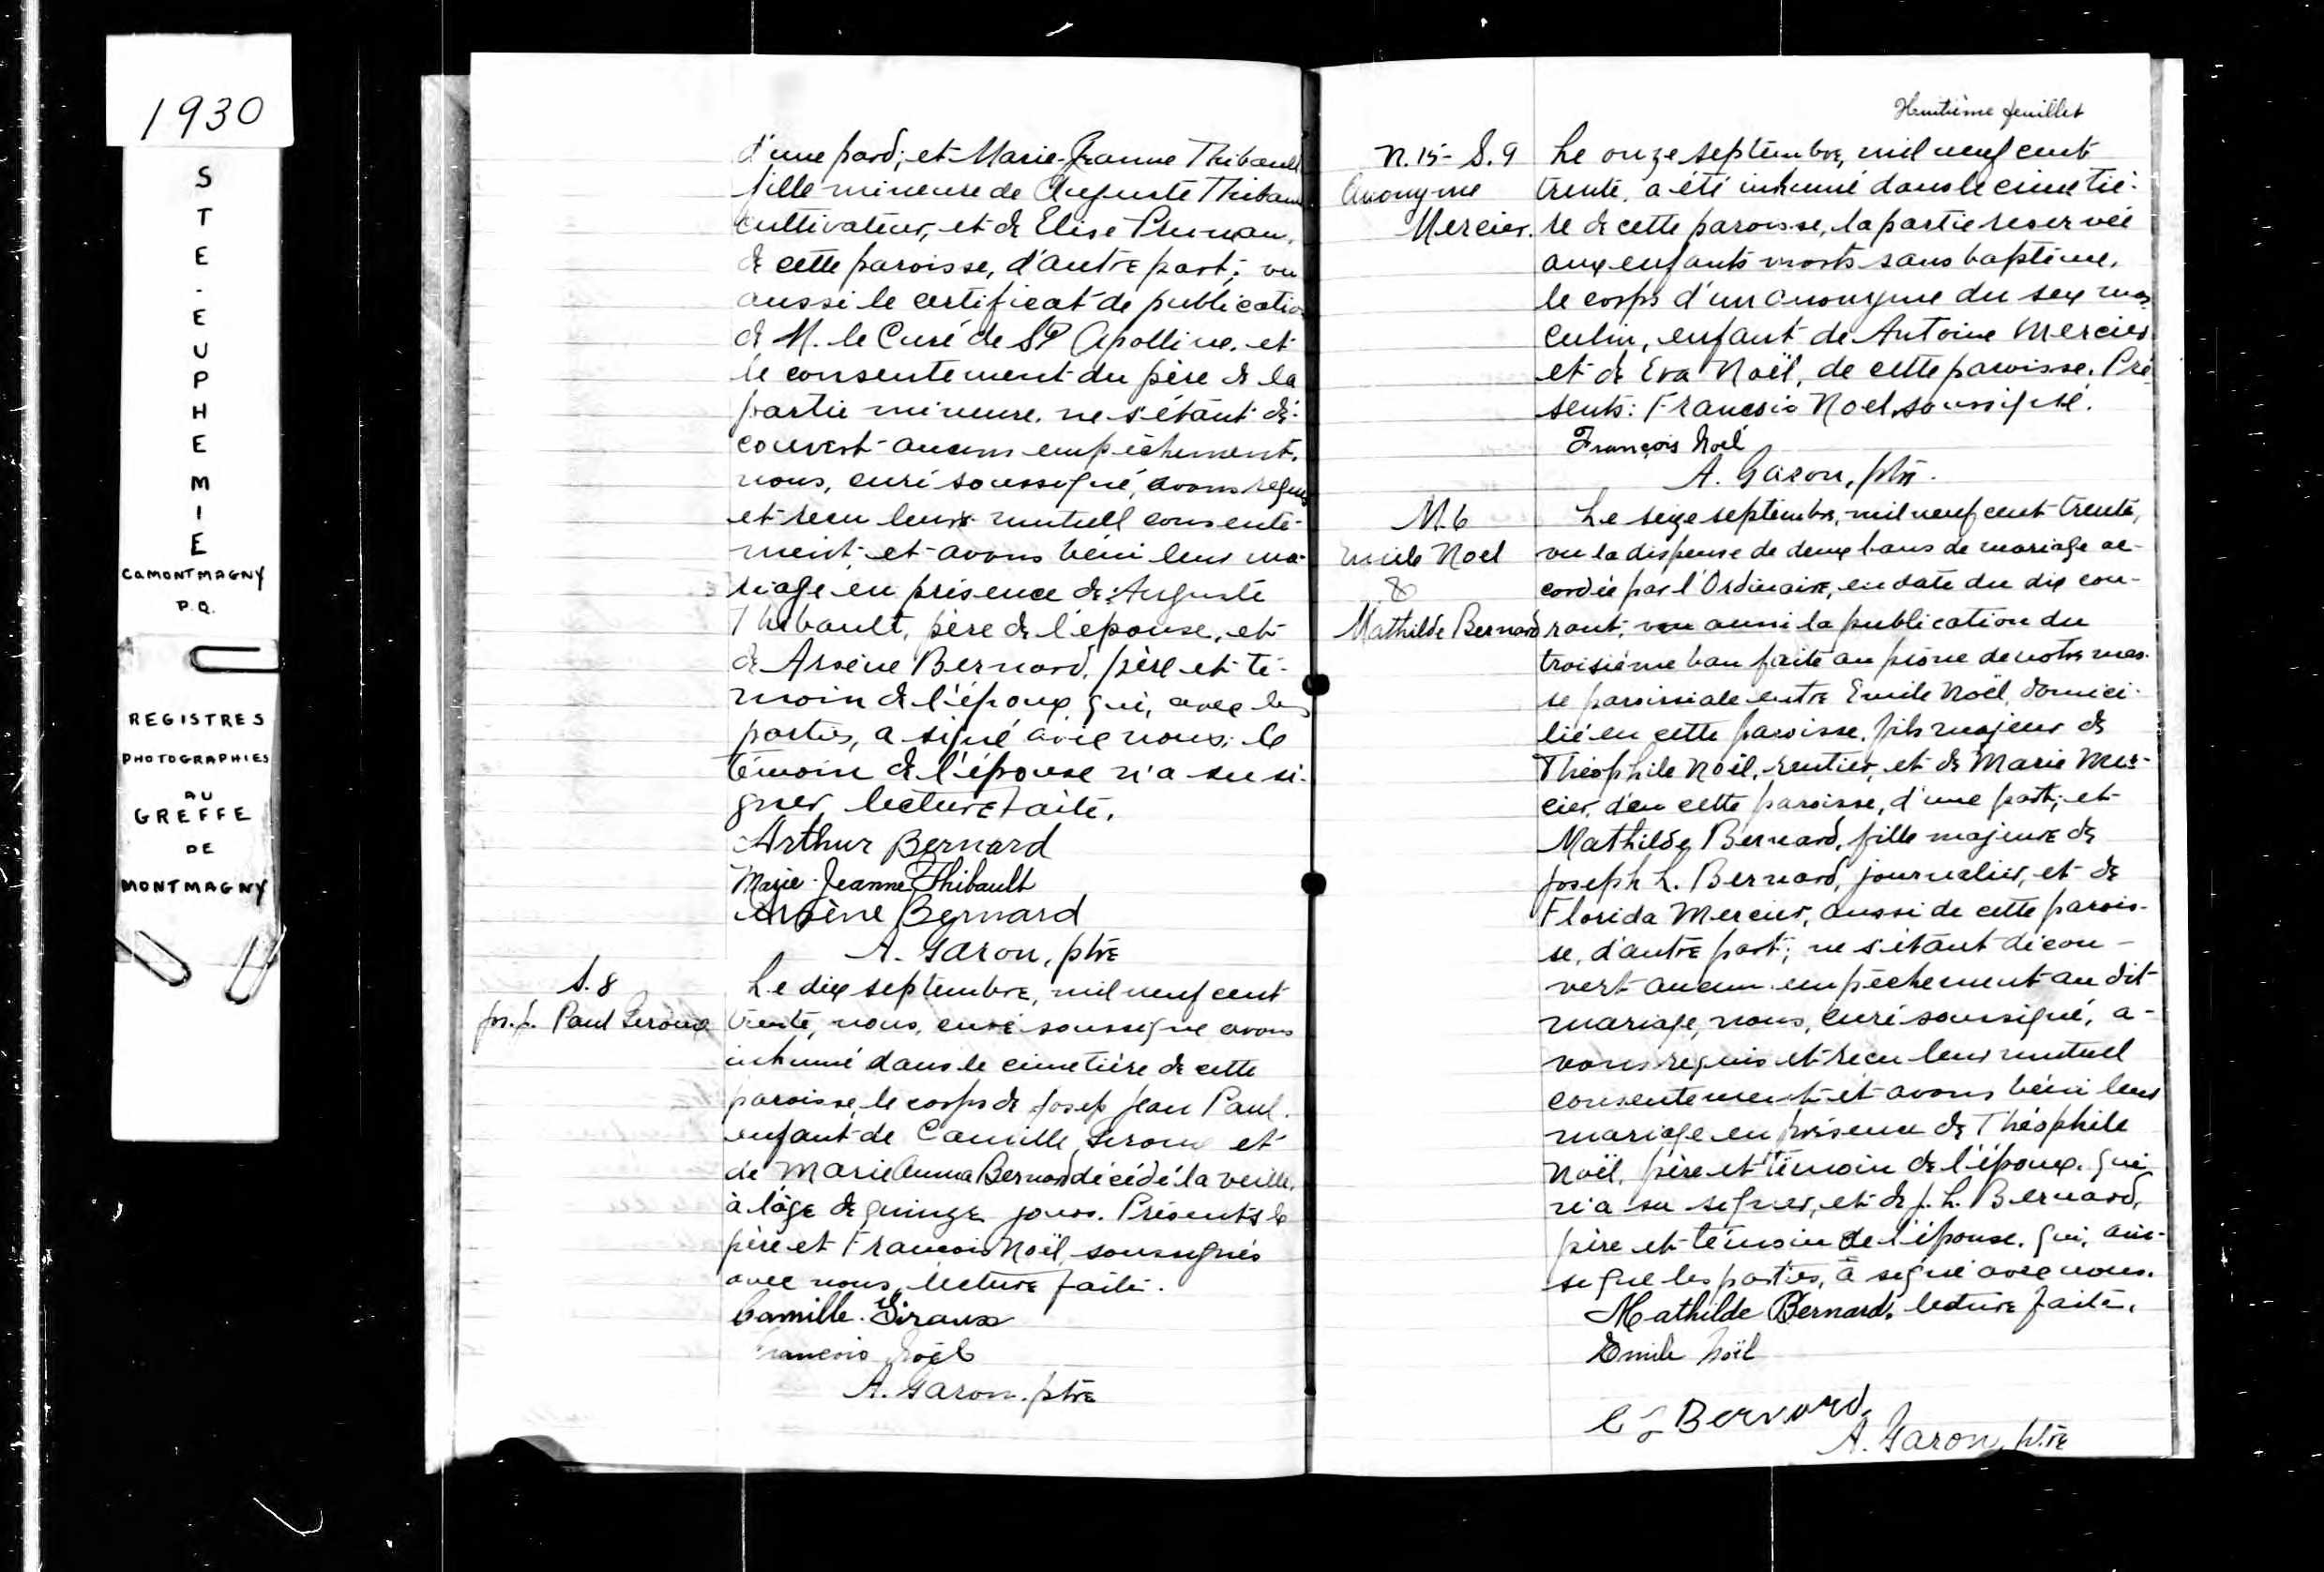 1930
STE-EUPHEMIE
CO MONTMAGNY
P.Q.
REGISTRES
PHOTOGRAPHIES
AU
GREFFE
DE
MONTMAGNY
d'une part; et Marie-Jeanne Thibault
fille mineure de Auguste Thibault
cultivateur, et de Elise
de cette paroisse, d'autre part; vu
aussi le certificat de publication
de M. le Curé de Ste Apolline, et
le consentement du père de la
partie mineure, ne s'étant dé-
couvert aucun empêchement,
nous, curé soussigné, avons requis
et reçu leur mutuell consente-
ment et avons béni leur ma-
riage en présence de Auguste
Thibault, père de l'épouse, et
de Arsène Bernard, père et té-
moin de l'époux qui, avec les
parties, a signé avec nous; le
témoin de l'épouse n'a su si-
gner lecture faite.
Arthur Bernard
Marie-Jeanne Thibault
Arsène Bernard
A. Garon, ptre
S. 8
Jos. J. Paul Giroux
Le dix septembre, mil neuf cent
trente, nous, curé soussigné avons
inhumé dans le cimetière de cette
paroisse, le corps de Josep Jean Paul,
enfant de Camille Giroux et
de Marie Anna Bernard décédé la veille,
à l'âge de quinze jours. Présents le
père et François Noël, soussignés
avec nous, lecture faite.
Camille Giroux
François Noël
A. Garon, ptre
Huitième feuillet
N. 15 - S. 9
Anonyme
Mercier.
Le onze septembre, mil neuf cent
trente, a été inhumé dans le cimetiè-
re de cette paroisse, la partie reservée
aux enfants morts sans baptême,
le corps d'un anonyme du sexe mas
culin, enfant de Antoine Mercier
et de Eva Noël, de cette paroisse. Pré
sents: François Noel, soussigné.
François Noël
A. Garon, ptre.
M. 6
Emile Noel
&
Mathilde Bernard
Le seize septembre, mil neuf cent trente,
vu la dispense de deux bans de mariage ac-
cordée par l'Ordinaire, en date du dix cou-
rant, vu aussi la publication du
troisième ban faite au prône de notre mes-
se paroissiale entre Emile Noël, domici-
lié en cette paroisse, fils majeur de
Théophile Noël, rentier, et de Marie Mer-
cier, d'en cette paroisse, d'une part; et
Mathilde Bernard, fille majeure de
Joseph L. Bernard, journalier, et de
Florida Mercier, aussi de cette parois-
se, d'autre part; ne s'étant décou-
vert aucun empêchement au dit
mariage, nous, curé soussigné, a-
vons requis et reçu leur mutuel
consentement et avons béni leur
mariage en présence de Théophile
Noël, père et témoin de l'époux, qui
n'a su signer, et de J. L. Bernard,
père et témoin de l'épouse, qui, ain-
si que les parties, a signé avec nous.
Mathilde Bernard, lecture faite.
Emile Noël
Bernard,
A. Garon, ptre